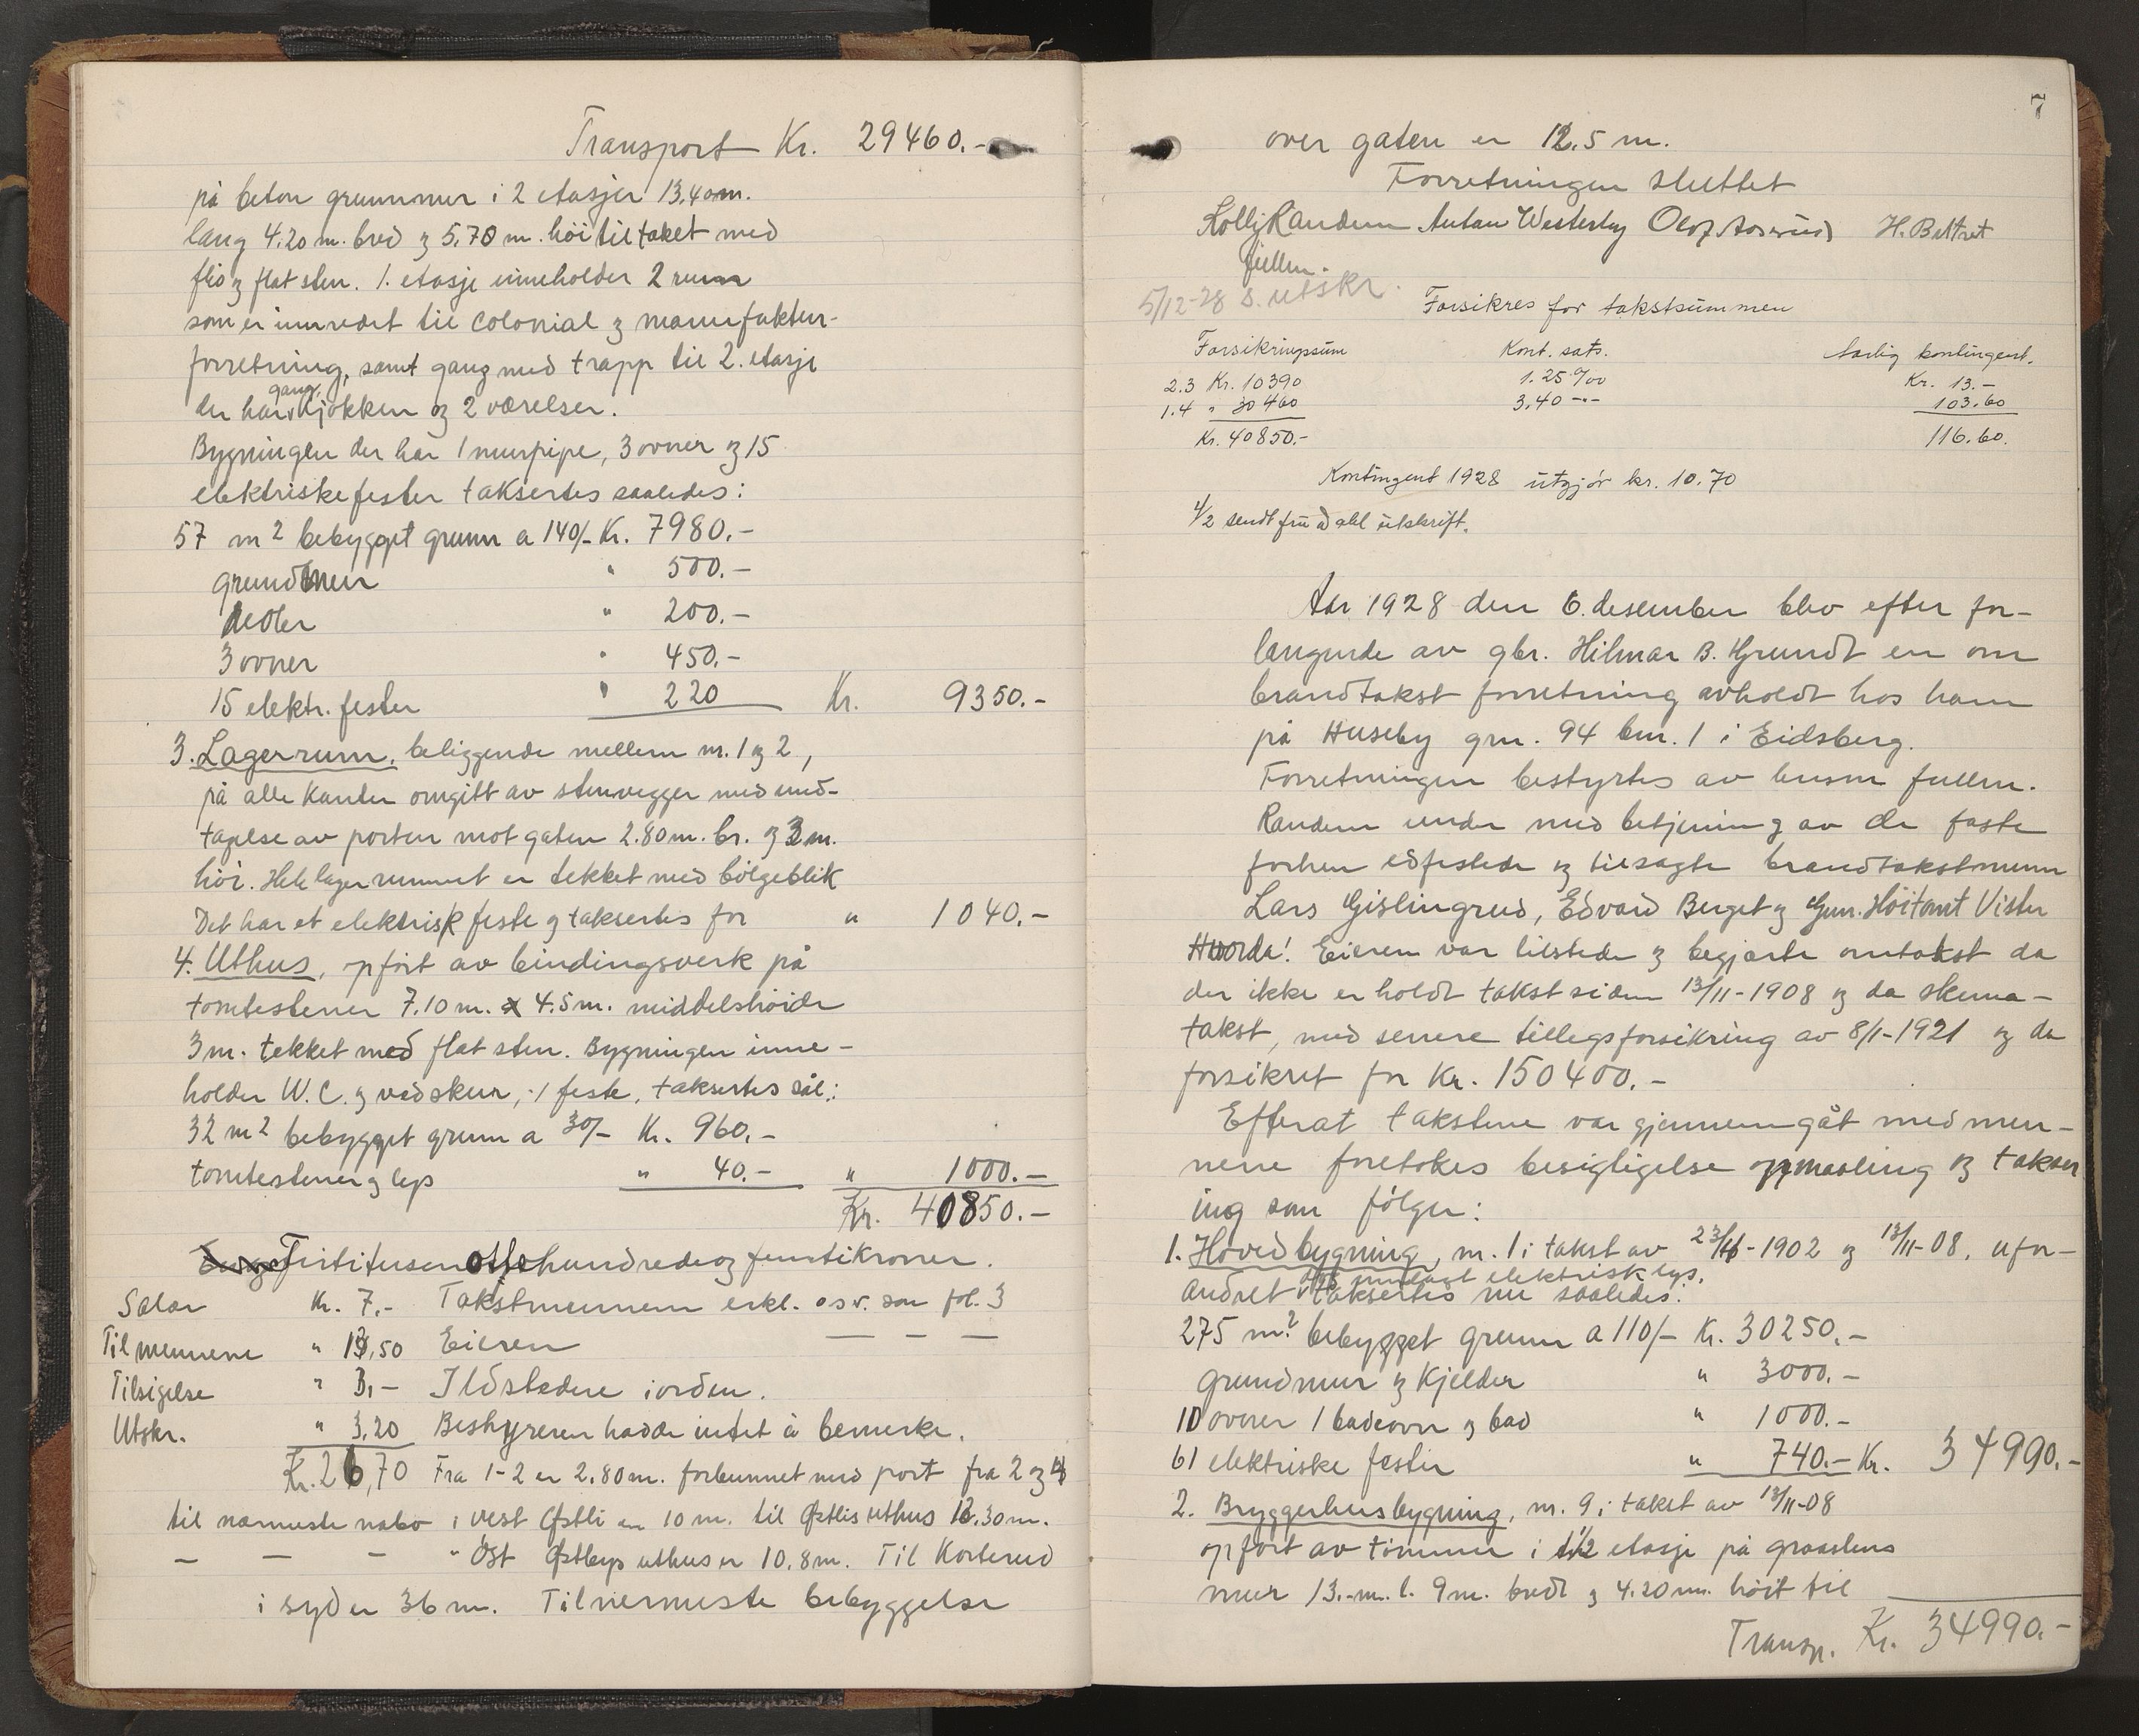 Transport Kr. 29460.-
på beton grunnmur i 2 etasjer 13,40m.
lang 4.20 m. bred og 5.70 m. höi til taket med
flis og flat sten. 1. etasje inneholder 2 rum
som er innredet til Colonial og manufaktur-
forretning, samt gang med trapp til 2. etasje
gang
der har kjökken og 2 værelser.
Bygningen der har 1 murpipe, 3 ovner og 15
elektriske fester taksertes saaledes:
57 m2 bebygget grunn a 140/- Kr. 7980.-
grundmur " 500.-
" 200.-
3 ovner " 450.-
15 elektr. fester " 220 Kr. 9350.-
3. Lagerrum, beliggende mellem nr. 1 og 2,
på alle kanter omgitt av stenvegger med und-
tagelse av porten mot gaten 2.80 m. br. og 3 m.
höi. Hele lagerrummet er tekket med bölgeblik
Det har et elektrisk feste og taksertes for " 1040.-
4. Uthus, opfört av bindingsverk på
tomtestener 7.10 m. x 4.5 m. middelshöide
3 m. tekket med flat sten. Bygningen inne-
holder W.C. og vedskur, 1 feste, taksertes sål.:
32 m2 bebygget grunn a 30/- Kr. 960.-
tomtestener og lys " 40.- " 1000.-
Kr. 40850.-
Firtitusenottehundredeogfemtikroner.
Salær Kr. 7.- Takstmennene erkl. osv. som fol. 3
Til mennene " 13,50 Eieren — — —
Tilsigelse " 3,- Ildstedene i orden.
Utskr. " 3,20 Bestyreren hadde intet å bemerke.
Kr. 26,70 Fra 1-2 er 2.80 m. forbunnet med port fra 2 og 4
til nærmeste nabo i vest Östli er 10 m. til Östlis uthus 12.30 m.
— — — " Öst Östbys uthus er 10.8 m. Til Korterud
i syd er 36 m. Til nermeste bebyggelse
7
over gaten er 12.5 m.
Forretningen sluttet
Kolbj Randem Anton Westerby Olaf H.
fullm.
5/12-28 s. utskr.
Forsikres for takstsummen
Forsikringssum Kont. sats. Aarlig kontingent.
2.3 Kr. 10390 1.25 o/oo Kr. 13.-
1.4 " 30460 3,40 -"- 103.60
Kr. 40850.- 116.60.
Kontingent 1928 utgjör kr. 10.70
4/2 sendt fru Dahl utskrift.
Aar 1928 den 6. desember blev efter for-
langende av gbr. Hilmar B. Grundt en om
brandtakst forretning avholdt hos ham
på Huseby grn. 94 brn. 1 i Eidsberg.
Forretningen bestyrtes av lensm fullm.
Randem under med betjening av de faste
forhen edfestede og tilsagte brandtakstmenn
Lars Gislingrud, Edvard Berget og Gun. Höitomt Vister
Hvorda! Eieren var tilstede og begjærte omtakst da
der ikke er holdt takst siden 13/11-1908 og da skema-
takst, med senere tillegsforsikring av 8/1-1921 og da
forsikret for Kr. 150400.-
Efterat takstene var gjennemgåt med men-
nene foretokes besigtigelse opmaaling og takser
ing som fölger:
1. Hovedbygning, nr. 1 i takst av 23/ -1902 og 13/11-08, ufor-
inlagt elektrisk lys,
andret taksertes nu saaledes:
275 m2 bebygget grunn a 110/- Kr. 30250.-
Grundmur og Kjelder " 3000.-
10 ovner 1 badeovn og bad " 1000.-
61 elektriske fester " 740.- Kr. 34990.-
2. Bryggerhusbygning, nr. 9 i takst av 13/11-08
opfört av tömmer i 1 1/2 etasje på graastens
mur 13.- m. l. 9 m. bredt og 4.20 m. höit til
Transp. Kr. 34990.-